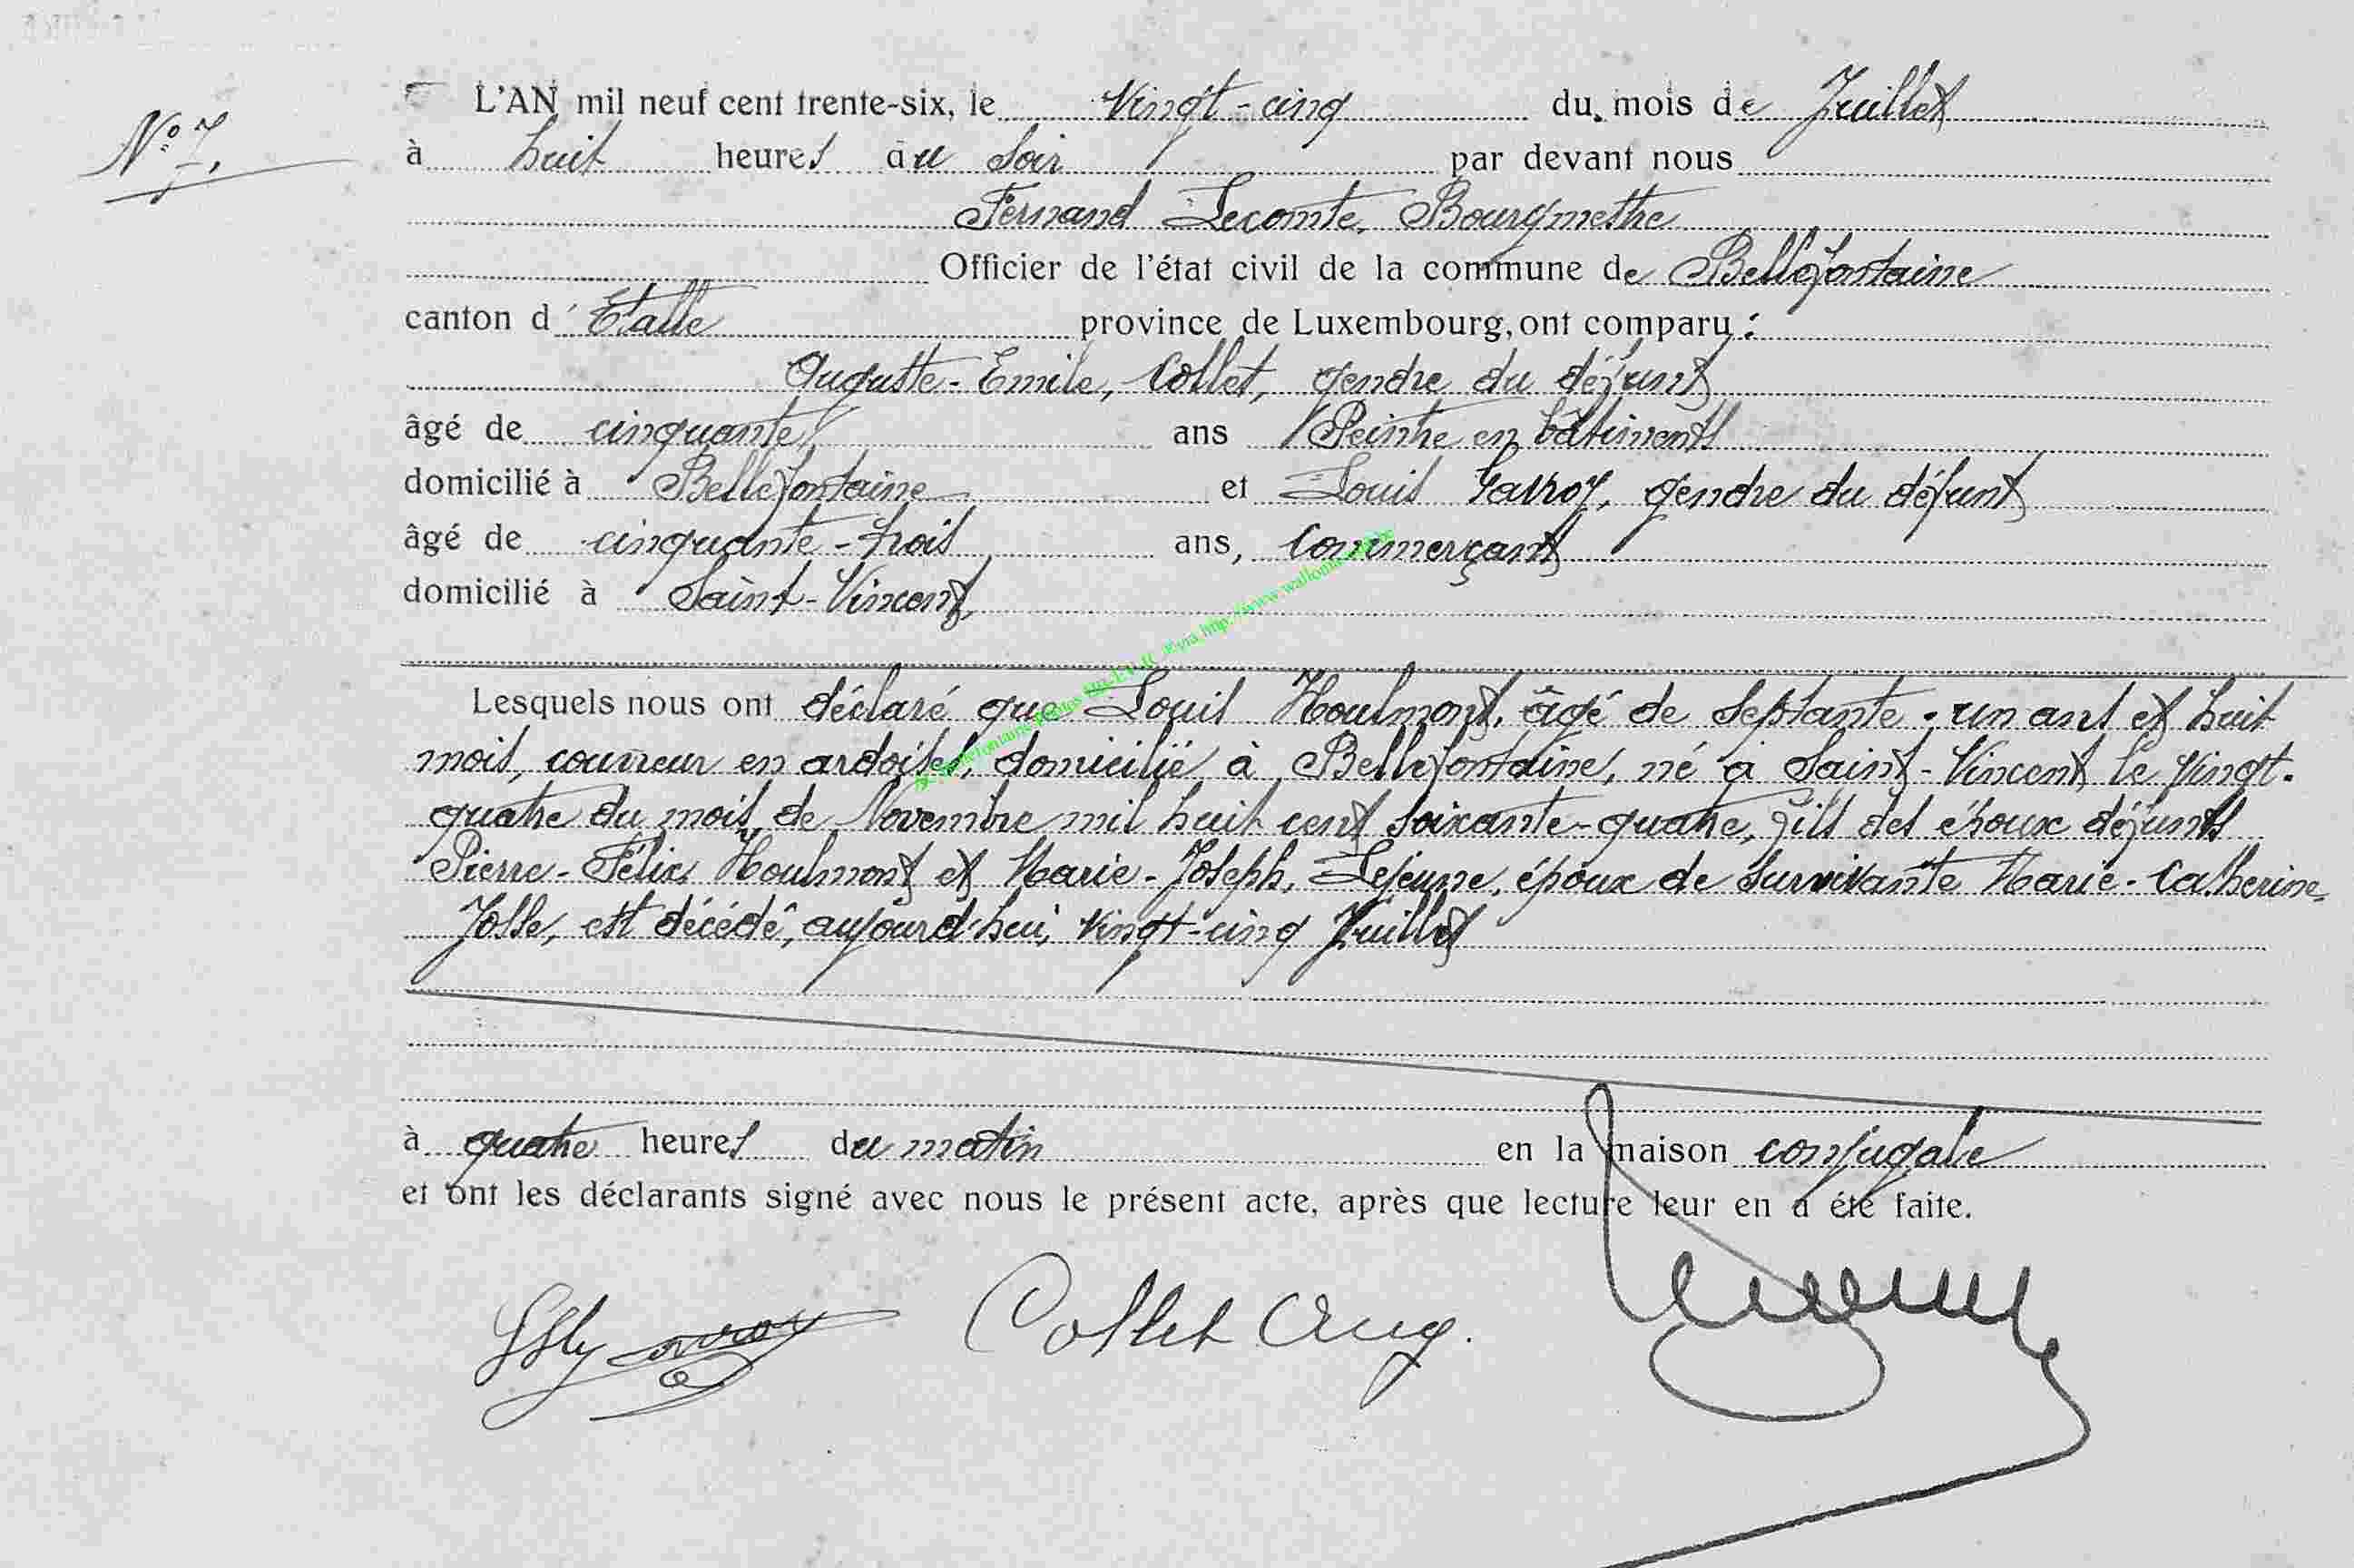 N° 7.
L'AN mil neuf cent trente-six, le Vingt-cinq du mois de Juillet
à huit heures du soir par devant nous
Fernand Lecomte, Bourgmestre
Officier de l'état civil de la commune de Bellefontaine
canton d'Etalle province de Luxembourg, ont comparu :
Auguste-Emile, Collet, gendre du défunt
âgé de cinquante ans Peintre en bâtiments
domicilié à Bellefontaine et Louis Gavroy, gendre du défunt
âgé de cinquante-trois ans, commerçant
domicilié à Saint-Vincent,
Lesquels nous ont déclaré que Louis Houlmont, âgé de septante-un ans et huit
mois, couvreur en ardoises, domicilié à Bellefontaine, né à Saint-Vincent le vingt-
quatre du mois de Novembre mil huit cent soixante-quatre, fils des époux défunts
Pierre-Félix Houlmont et Marie-Joseph, Lejeune, époux de survivante Marie-Catherine
Josse, est décédé, aujourd'hui, vingt-cinq Juillet
à quatre heures du matin en la maison conjugale
et ont les déclarants signé avec nous le présent acte, après que lecture leur en a été faite.
Collet Aug.